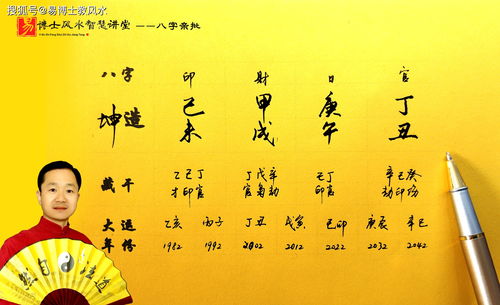 搜狐号@易博士教风水
易 博士风水智慧讲堂 ——八字亲批
八字 印 財 日 官
坤造 己 甲 庚 丁
未 戌 午 丑
藏干 乙己丁 丁戊辛 己丁 辛己癸
才印官 官枭劫 印官 劫印伤
大运 乙亥 丙子 丁丑 戊寅 己卯 庚辰 辛巳
年份 1982 1992 2002 2012 2022 2032 2042
然自 法道